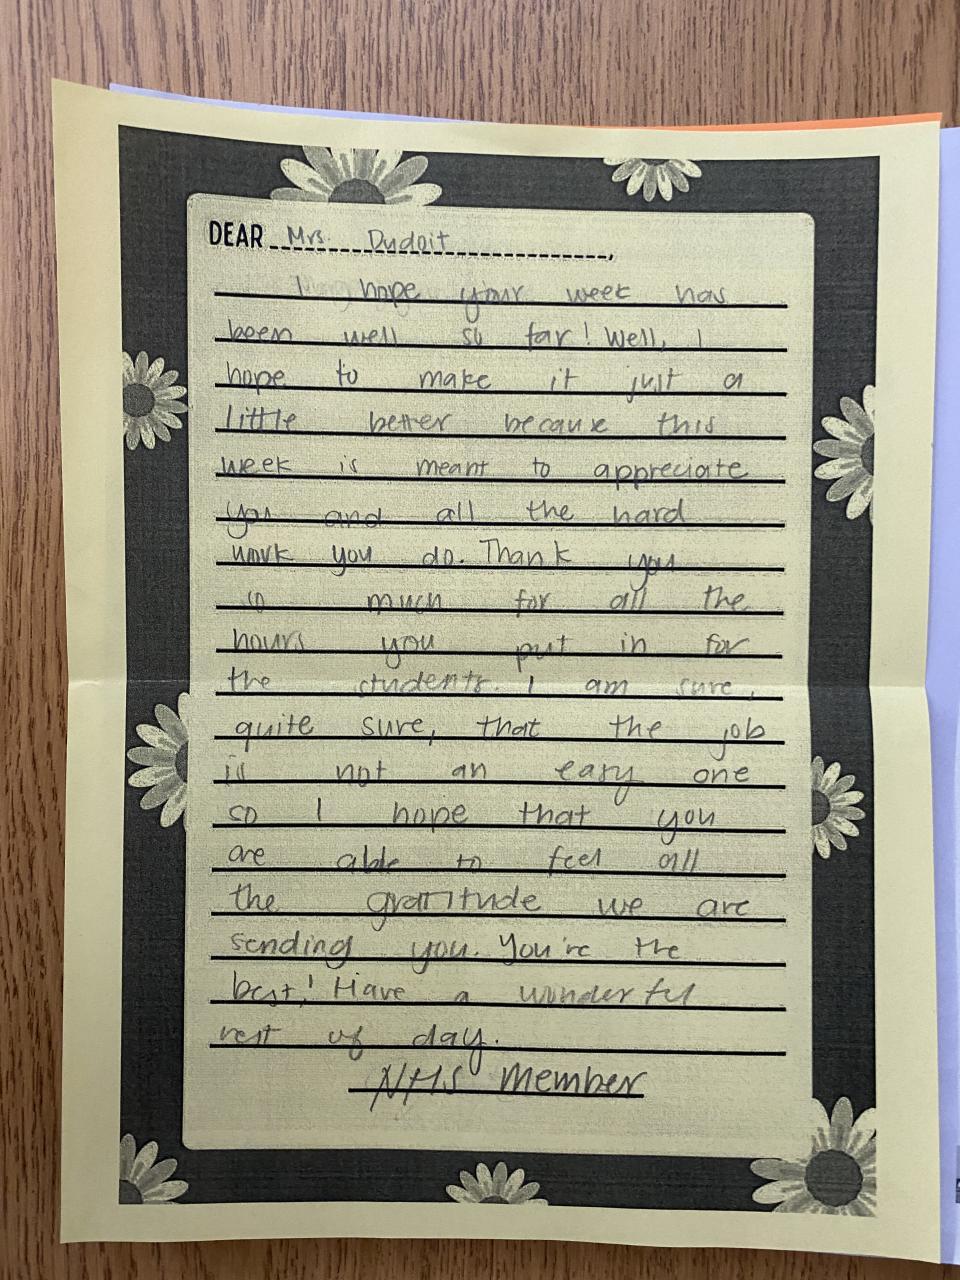 DEAR Mrs. Dudoit,
I hope your week has
been well so far! Well, I
hope to make it just a
little better because this
week is meant to appreciate
you and all the hard
work you do. Thank you
so much for all the
hours you put in for
the students. I am sure,
quite sure, that the job
is not an easy one
so I hope that you
are able to feel all
the gratitude we are
sending you. You're the
best! Have a wonderful
rest of day.
NHS Member